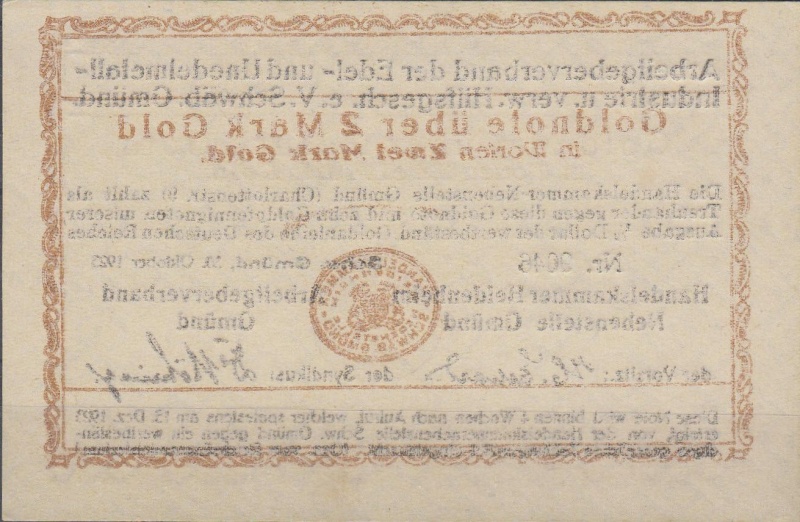 Arbeitgeberverband der Edel- und Unedelmetall-
Industrie u. verw. Hilfsgesch. e. V. Schwäb. Gmünd.
Goldnote über 2 Mark Gold
in Worten Zwei Mark Gold.
Die Handelskammer-Nebenstelle Gmünd (Charlottenstr. 9) zahlt als
Treuhänder gegen diese Goldnote und zehn Goldpfennignoten unserer
Ausgabe ½ Dollar der wertbeständ. Goldanleihe des Deutschen Reiches
Nr. 2046 Schw. Gmünd, 30. Oktober 1923
Handelskammer Heidenheim Arbeitgeberverband
Nebenstelle Gmünd Gmünd
der Vorsitz.: der Syndikus:
Diese Note wird binnen 4 Wochen nach Aufruf, welcher spätestens am 15. Dez. 1923
erfolgt, von der Handelskammernebenstelle Schw. Gmünd gegen ein wertbestän-